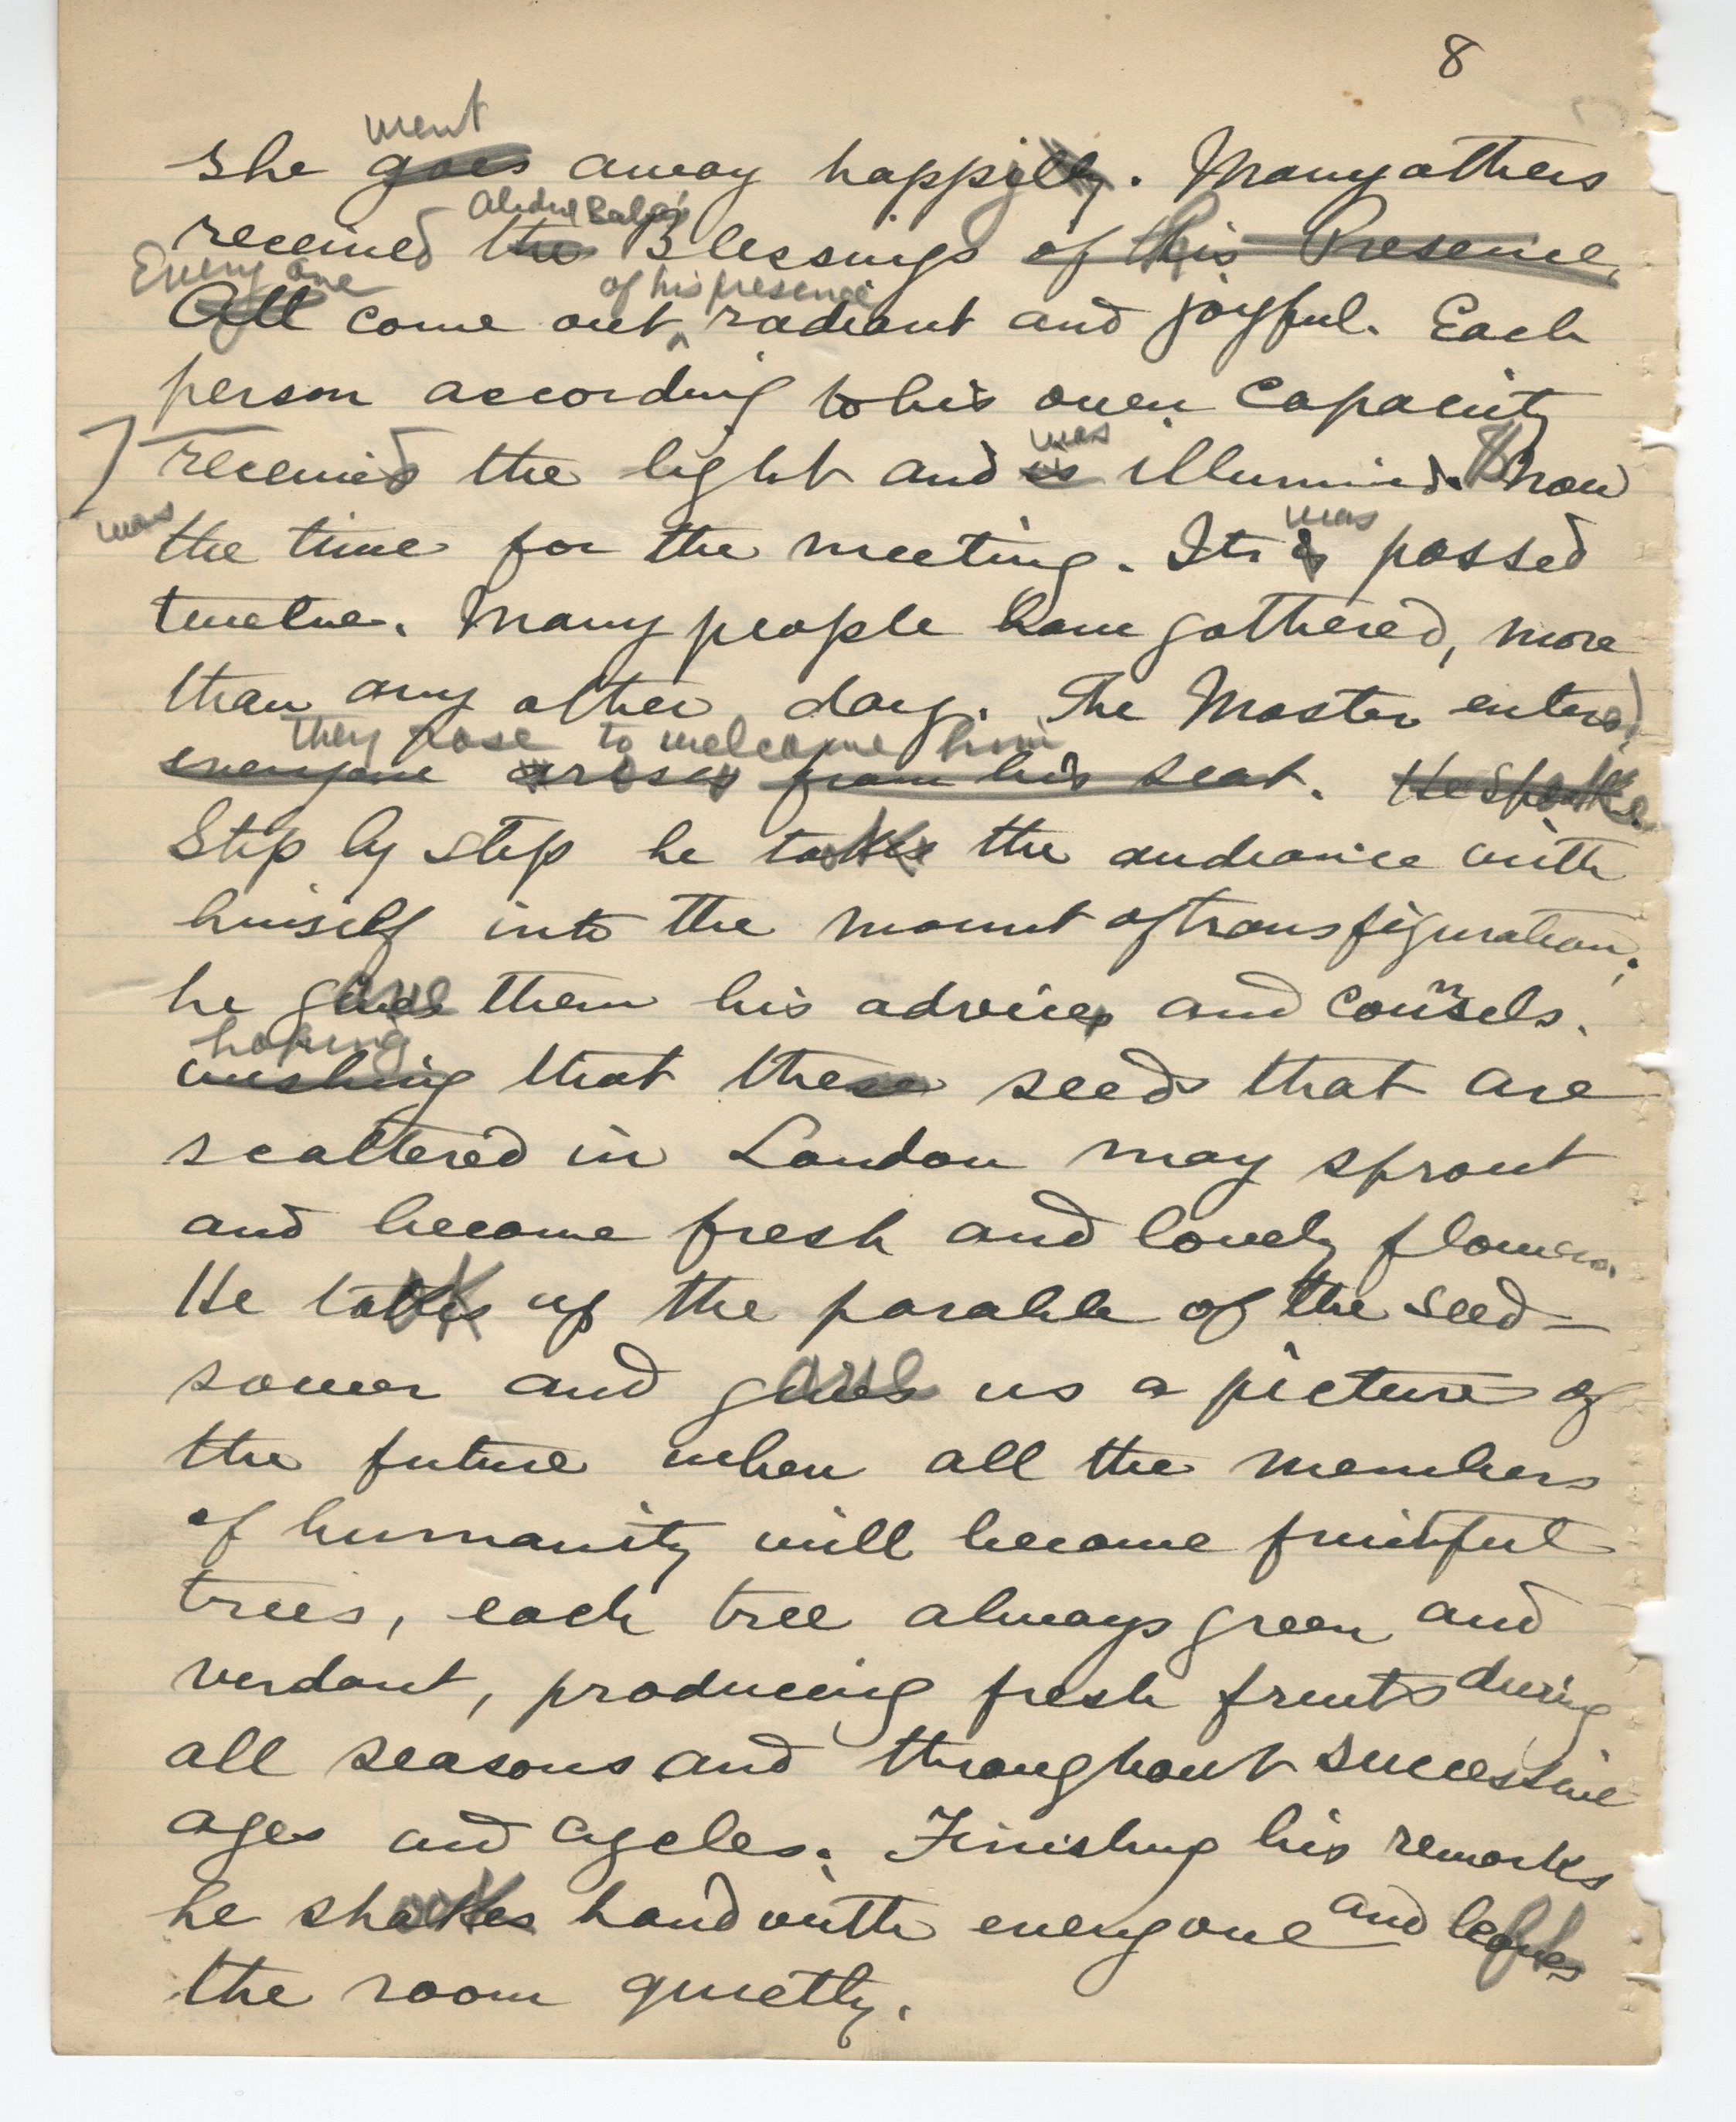 8
went
she goes away happily. Many others
Abdul Baha's
received the Blessings of his Presence,
Every one of his presence
All come out radiant and joyful. Each
person according to his own capacity
was
received the light and is illumined. Now
was was
the time for the meeting. It is passed
twelve. Many people have gathered, more
than any other day. The Master entered,
They rose to welcome him
everyone arises from his seat. He spoke.
Step by step he took the audience with
himself into the mount of transfiguration.
he gave them his advice and counsels.
hoping
wishing that these seeds that are
scattered in London may sprout
and become fresh and lovely flowers.
He took up the parable of the seed-
sower and gave us a picture of
the future when all the members
of humanity will become fruitful
trees, each tree always green and
verdant, producing fresh fruits during
all seasons and throughout successive
ages and cycles. Finishing his remarks
he shook hand with everyone and left
the room quietly.